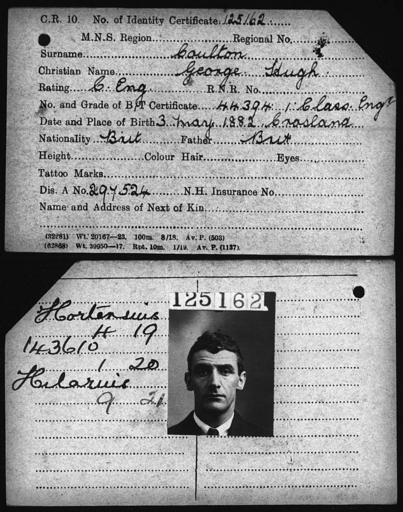 C.R. 10. No. of Identity Certificate 125162
M.N.S. Region Regional No.
Surname Coulton
Christian Name George Hugh
Rating C. Eng R.N.R. No.
No. and Grade of B/T Certificate 44394 1 Class Engr
Date and Place of Birth 3 May 1882 Crosland
Nationality Brit Father Brit
Height Colour Hair Eyes
Tattoo Marks
Dis. A No. 297524 N.H. Insurance No.
Name and Address of Next of Kin
(32781) Wt. 20167—23. 100m. 8/18. Av. P. (503)
(62868) Wt. 39950—17. Rpt. 10m. 1/19. Av. P. (1137)
125162
Hortensius
4 19
143610
1 20
Hilarius
9 21